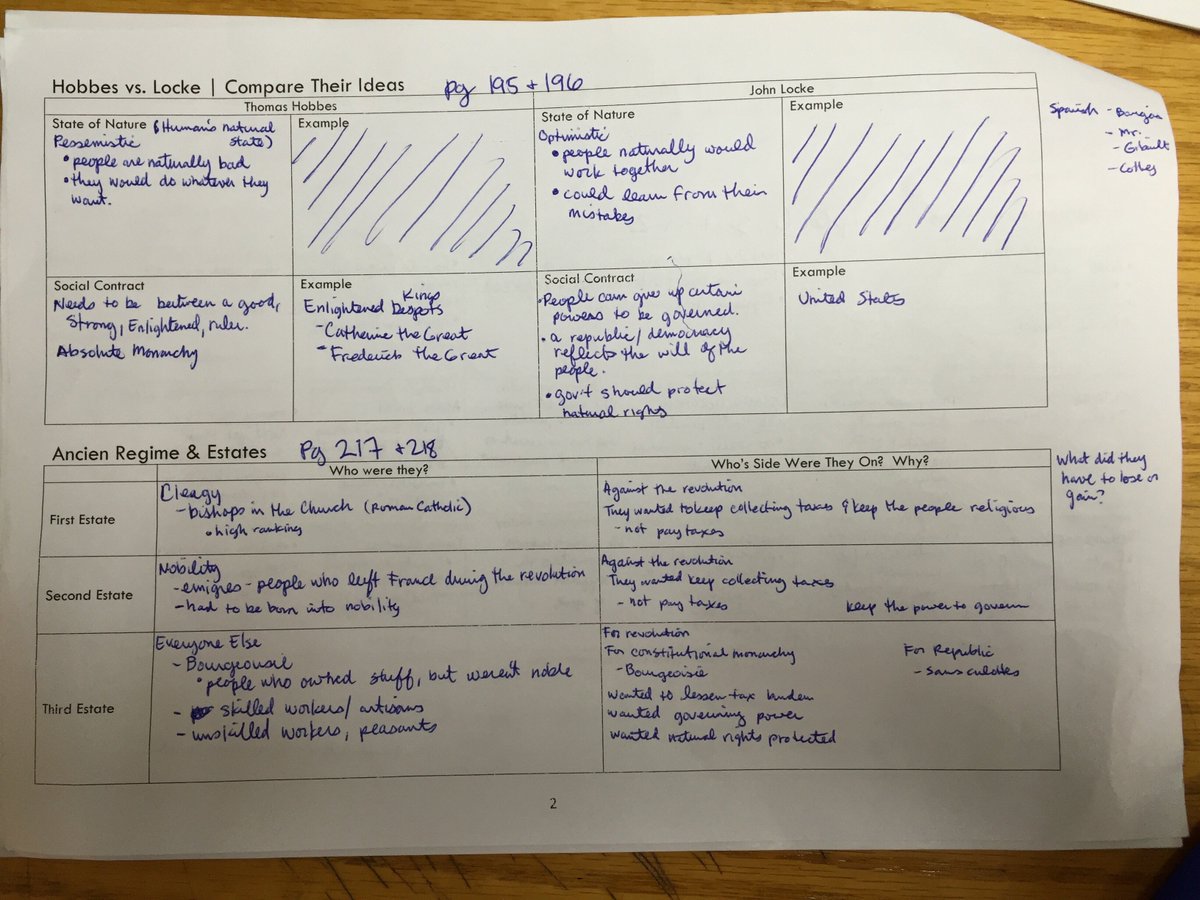 Hobbes vs. Locke | Compare Their Ideas pg 195 + 196
Thomas Hobbes
John Locke
State of Nature (Human's natural state)
Pessemistic
• people are naturally bad
• they would do whatever they
want.
Example
State of Nature
Optimistic
• people naturally would
work together
• could learn from their
mistakes
Example
Spanish -
- Mr.
- Gibault
Social Contract
Needs to be between a good,
Strong, Enlightened, ruler.
Absolute Monarchy
Example
Kings
Enlightened Despots
- Catherine the Great
- Frederick the Great
Social Contract
• People can give up certain
powers to be governed.
• a republic/democracy
reflects the will of the
people.
• gov't should protect
natural rights
Example
United States
Ancien Regime & Estates Pg 217 + 218
Who were they?
Who's Side Were They On? Why?
What did they
have to lose or
gain?
First Estate
Cleagy
- bishops in the Church (Roman Catholic)
• high ranking
Against the revolution
They wanted to keep collecting taxes & keep the people religious
- not pay taxes
Second Estate
Nobility
- emigres - people who left France during the revolution
- had to be born into nobility
Against the revolution
They wanted keep collecting taxes
- not pay taxes keep the power to govern
Third Estate
Everyone Else
- Bourgeousie
• people who owned stuff, but weren't noble
- skilled workers/artisans
- unskilled workers, peasants
For revolution
For constitutional monarchy
- Bourgeoisie
For Republic
- sans culottes
wanted to lessen tax burden
wanted governing power
wanted natural rights protected
2